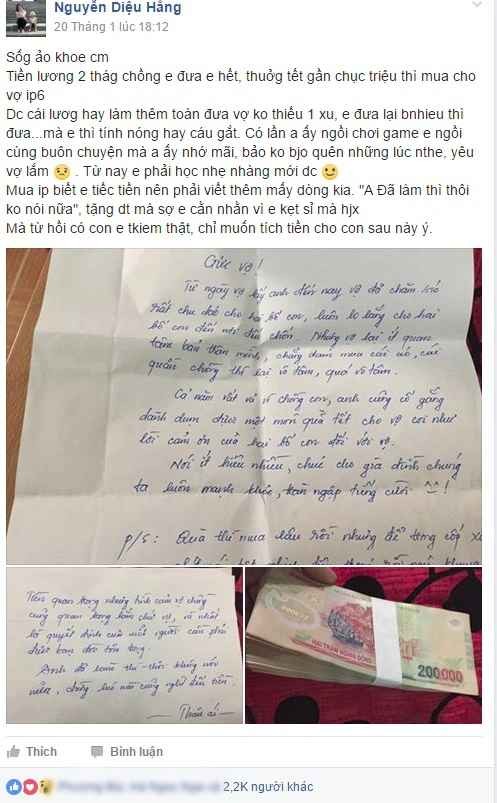 Nguyễn Diệu Hằng
20 Tháng 1 lúc 18:12
Sốg ảo khoe cm
Tiền lương 2 thág chồng e đưa e hết, thuởg tết gần chục triệu thì mua cho
vợ ip6
Dc cái lươg hay làm thêm toàn đưa vợ ko thiếu 1 xu, e đưa lại bnhieu thì
đưa...mà e thì tính nóng hay cáu gắt. Có lần a ấy ngồi chơi game e ngồi
cùng buôn chuyện mà a ấy nhớ mãi, bảo ko bjo quên những lúc nthe, yêu
vợ lắm . Từ nay e phải học nhẹ nhàng mới dc
Mua ip biết e tiếc tiền nên phải viết thêm mấy dòng kia. "A Đã làm thì thôi
ko nói nữa", tặng dt mà sợ e cằn nhằn vì e kẹt sỉ mà hjx
Mà từ hồi có con e tkiem thật, chỉ muốn tích tiền cho con sau này ý.
Gửi vợ!
Từ ngày vợ lấy anh đến nay vợ đã chăm sóc
rất chu đáo cho hai bố con, luôn lo lắng cho hai
bố con đến nơi đến chốn. Nhưng vợ lại ít quan
tâm bản thân mình, chẳng dám mua cái áo, cái
quần chồng thì lại vô tâm, quá vô tâm.
Cả năm vất vả vì chồng con, anh cũng cố gắng
dành dụm được một món quà tết cho vợ coi như
lời cảm ơn của hai bố con đối với vợ.
Nói ít hiểu nhiều, chúc cho gia đình chúng
ta luôn mạnh khỏe, tràn ngập tiếng cười ^^!
p/s: Quà thì mua lâu rồi nhưng để
Tiền quan trọng nhưng tình cảm vợ chồng
cũng quan trọng lắm chứ vợ, và nhất
là quyết định của mỗi người cần phải
được bạn đời tôn trọng.
Anh đã làm thì thôi không nói
nữa, đừng lúc nào cũng nghĩ đến tiền.
— Thân ái —
HAI TRĂM NGHÌN ĐỒNG
200.000
Thích
Bình luận
2,2K người khác